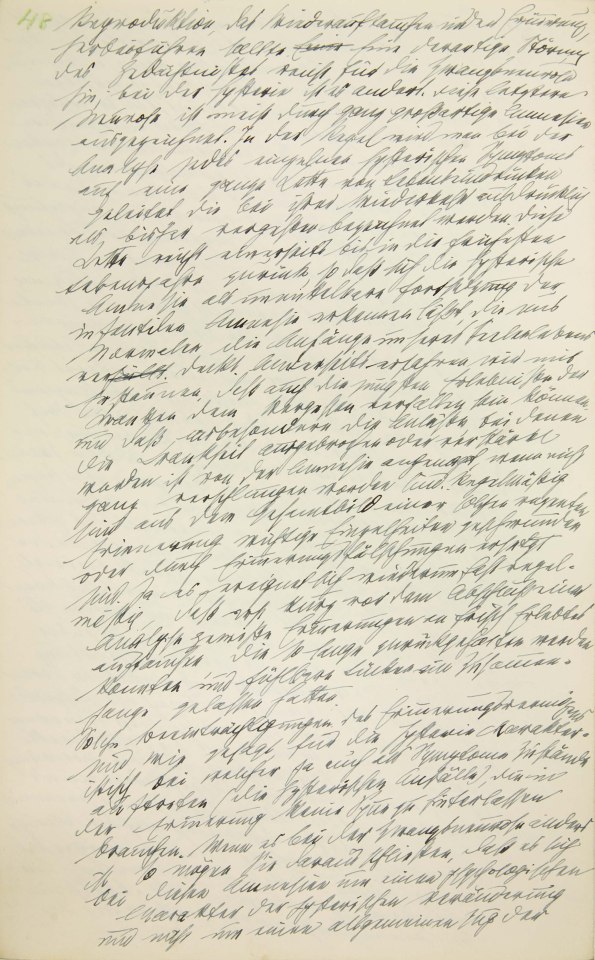 48
Reproduktion, das Wiederauftauchen in der Erinnerung,
herbeiführen sollte. Eine derartige Störung
des Gedächtnisses reicht für die Zwangsneurose
hin, bei der Hysterie ist es anders. Diese letztere
Neurose ist meist durch ganz großartige Amnesien
ausgezeichnet. In der Regel wird man bei der
Analyse jedes einzelnen hysterischen Symptoms
auf eine ganze Kette von Lebenseindrücken
geleitet, die bei ihrer Wiederkehr ausdrücklich
als bisher vergessen bezeichnet werden. Diese
Kette reicht einerseits bis in die frühesten
Lebensjahre zurück, so daß sich die hysterische
Amnesie als unmittelbare Fortsetzung der
infantilen Amnesie erkennen läßt, die uns
Normalen die Anfänge unseres Seelenlebens
verdeckt. Anderseits erfahren wir mit
Erstaunen, daß auch die jüngsten Erlebnisse der
Kranken dem Vergessen verfallen sein können
und daß insbesondere die Anlässe, bei denen
die Krankheit ausgebrochen oder verstärkt
worden ist, von der Amnesie angenagt, wenn nicht
ganz verschlungen worden sind. Regelmäßig
sind aus dem Gesamtbild einer solchen rezenten
Erinnerung wichtige Einzelheiten geschwunden
oder durch Erinnerungsfälschungen ersetzt
sind. Ja es ereignet sich wiederum fast regel-
mäßig, daß erst kurz vor dem Abschluß einer
Analyse gewisse Erinnerungen an frisch Erlebtes
auftauchen, die so lange zurückgehalten werden
konnten und fühlbare Lücken im Zusammen-
hange gelassen hatten.
Solche Beeinträchtigungen des Erinnerungsvermögens
sind wie gesagt für die Hysterie charakter-
istisch, bei welcher ja auch als Symptome Zustände
auftreten (die hysterischen Anfälle), die in
der Erinnerung keine Spur zu hinterlassen
brauchen. Wenn es bei der Zwangsneurose anders
ist, so mögen Sie daraus schließen, daß es sich
bei diesen Amnesien um einen psychologischen
Charakter der hysterischen Veränderung
und nicht um einen allgemeinen Zug der